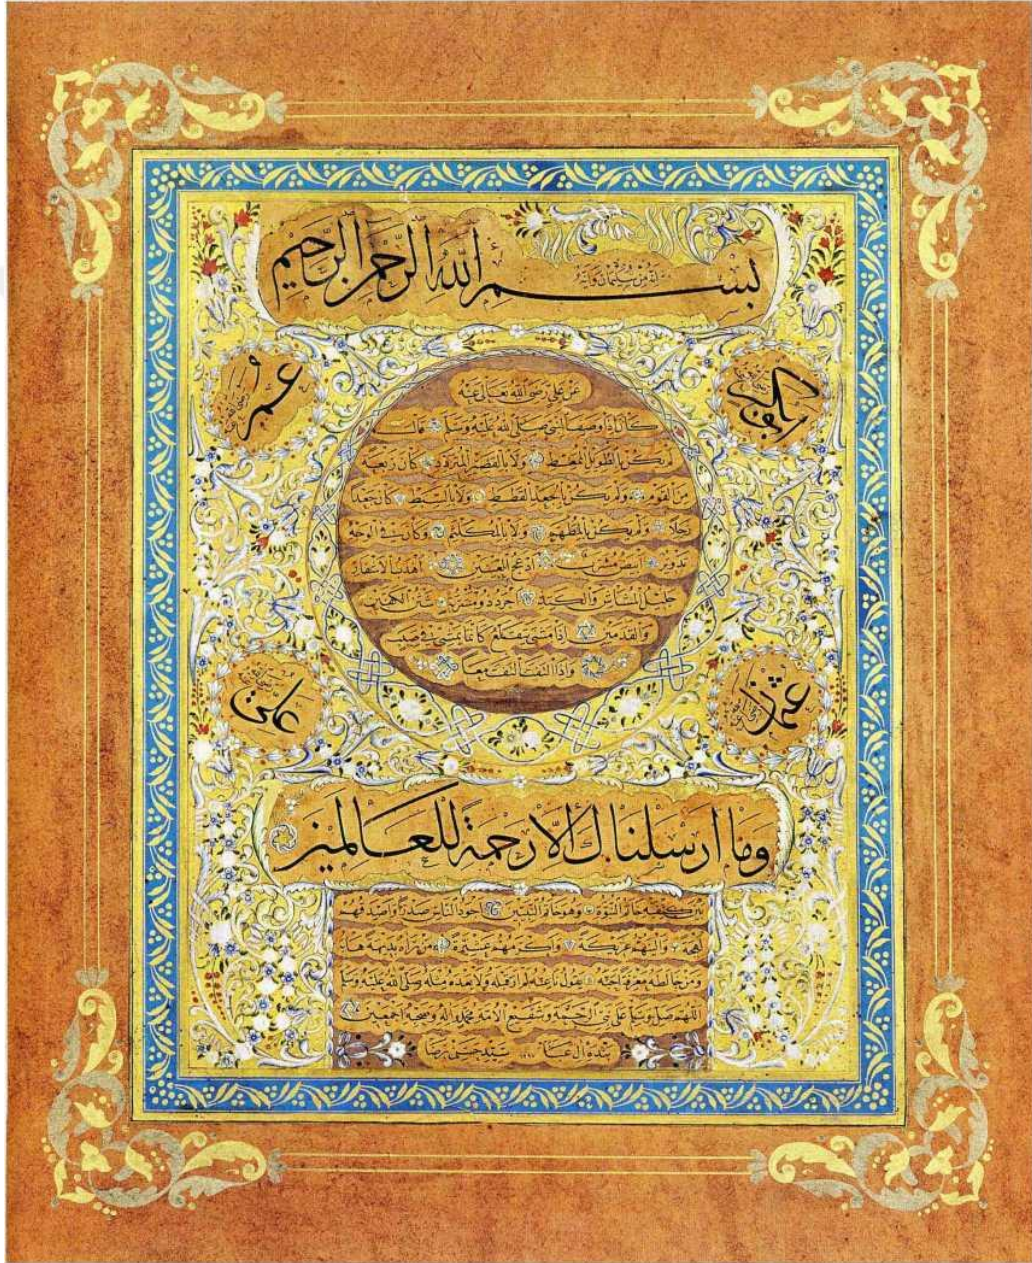 إنه من سليمان وإنه
بسم الله الرحمن الرحيم
ابو بكر رضي الله عنه
عمر رضي الله عنه
عن علي رضي الله تعالى عنه
كان اذا وصف النبي صلى الله عليه وسلم قال
لم يكن بالطويل الممغط ولا بالقصير المتردد كان ربعة
من القوم ولم يكن بالجعد القطط ولا بالسبط كان جعدا
رجلا ولم يكن بالمطهم ولا بالمكلثم وكان في الوجه
تدوير ابيض مشرب ادعج العينين اهدب الاشفار
جليل المشاش والكتد اجرد ذو مسربة شثن الكفين
والقدمين اذا مشى يتقلع كانما يمشي في صبب
واذا التفت التفت معا
عثمان رضي الله عنه
علي رضي الله عنه
وما ارسلناك الا رحمة للعالمين
بين كتفيه خاتم النبوة وهو خاتم النبيين اجود الناس صدرا واصدقهم
لهجة والينهم عريكة واكرمهم عشيرة من رآه بديهة هابه
ومن خالطه معرفة احبه يقول ناعته لم ار قبله ولا بعده مثله صلى الله عليه وسلم
اللهم صل وسلم على نبي الرحمة وشفيع الامة محمد وآله وصحبه اجمعين
بنده آل عبا سيد حسن رضا